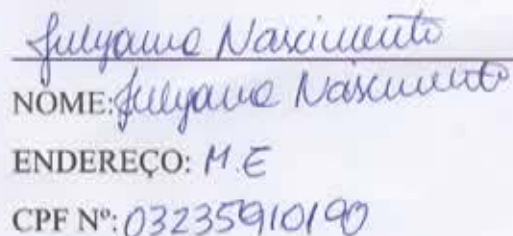 Julyana Nascimento
NOME: Julyana Nascimento
ENDEREÇO: M.E
CPF Nº: 03235910190